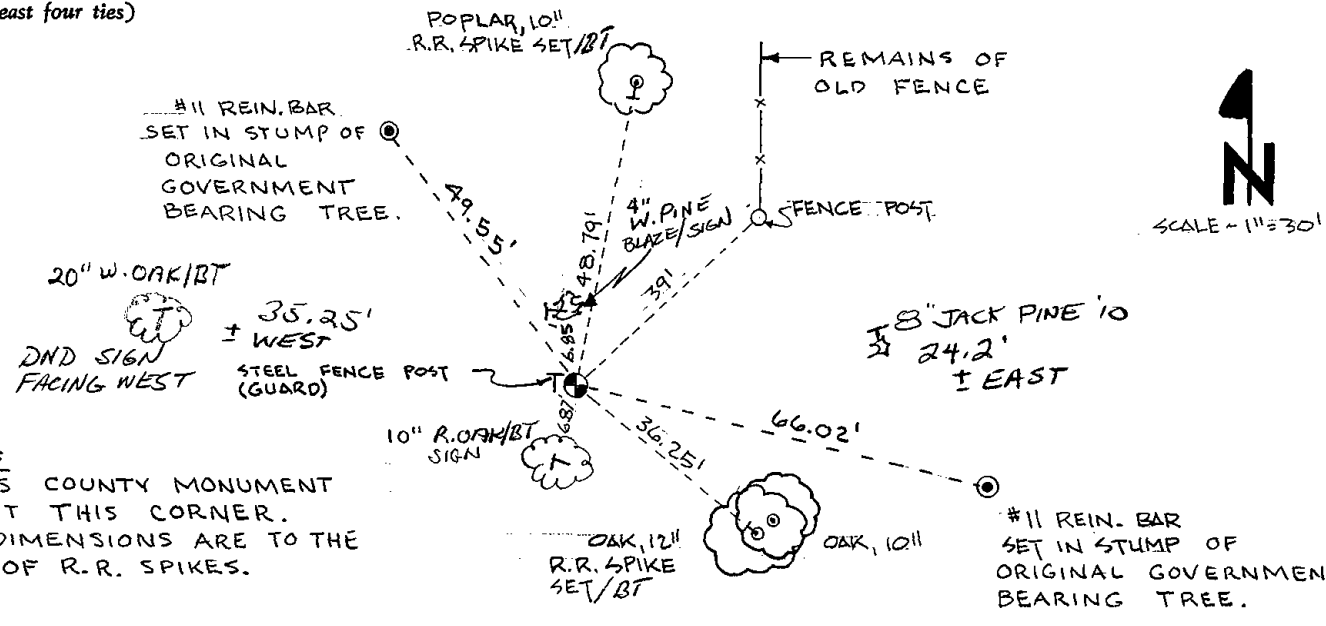 east four ties)
POPLAR, 10"
R.R. SPIKE SET/BT
REMAINS OF
OLD FENCE
#11 REIN. BAR
SET IN STUMP OF
ORIGINAL
GOVERNMENT
BEARING TREE.
N
SCALE ~ 1"=30'
49.55'
48.79'
4"
W. PINE
BLAZE/SIGN
FENCE POST
39'
20" W. OAK/BT
± 35.25'
WEST
DND SIGN
FACING WEST
STEEL FENCE POST
(GUARD)
T
6.85
8" JACK PINE '10
24.2'
± EAST
6.87'
10" R.OAK/BT
SIGN
36.25'
66.02'
S COUNTY MONUMENT
T THIS CORNER.
DIMENSIONS ARE TO THE
OF R.R. SPIKES.
OAK, 12"
R.R. SPIKE
SET/BT
OAK, 10"
#11 REIN. BAR
SET IN STUMP OF
ORIGINAL GOVERNMEN
BEARING TREE.